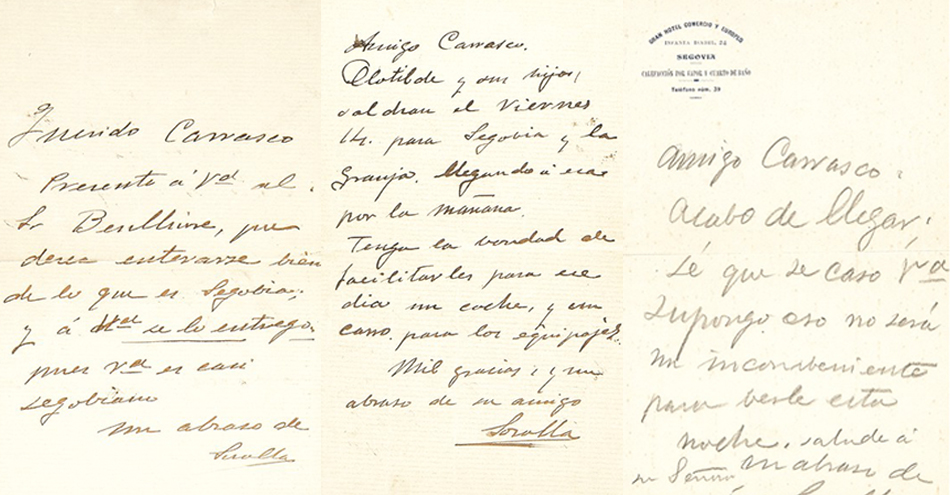 Querido Carrasco
Presento á Vd al
Sr Benlliure, que
desea enterarse bien
de lo que es Segobia;
y á Vd se lo entrego,
pues Vd es casi
segobiano
un abraso de
Sorolla
Amigo Carrasco.
Clotilde y sus hijos,
saldran el Viernes
14. para Segobia y la
Granja. llegando á esa
por la mañana.
Tenga la bondad de
facilitarles para ese
dia un coche, y un
carro para los equipajes.
Mil gracias, y un
abraso de su amigo
Sorolla
GRAN HOTEL COMERCIO Y EUROPEO
INFANTA ISABEL, 24
SEGOVIA
CALEFACCIÓN POR VAPOR Y CUARTO DE BAÑO
Teléfono núm. 29
Amigo Carrasco.
Acabo de llegar,
sé que se caso Vd
supongo eso no será
un inconbeniente
para berle esta
noche, salude á
su Señora un abraso de